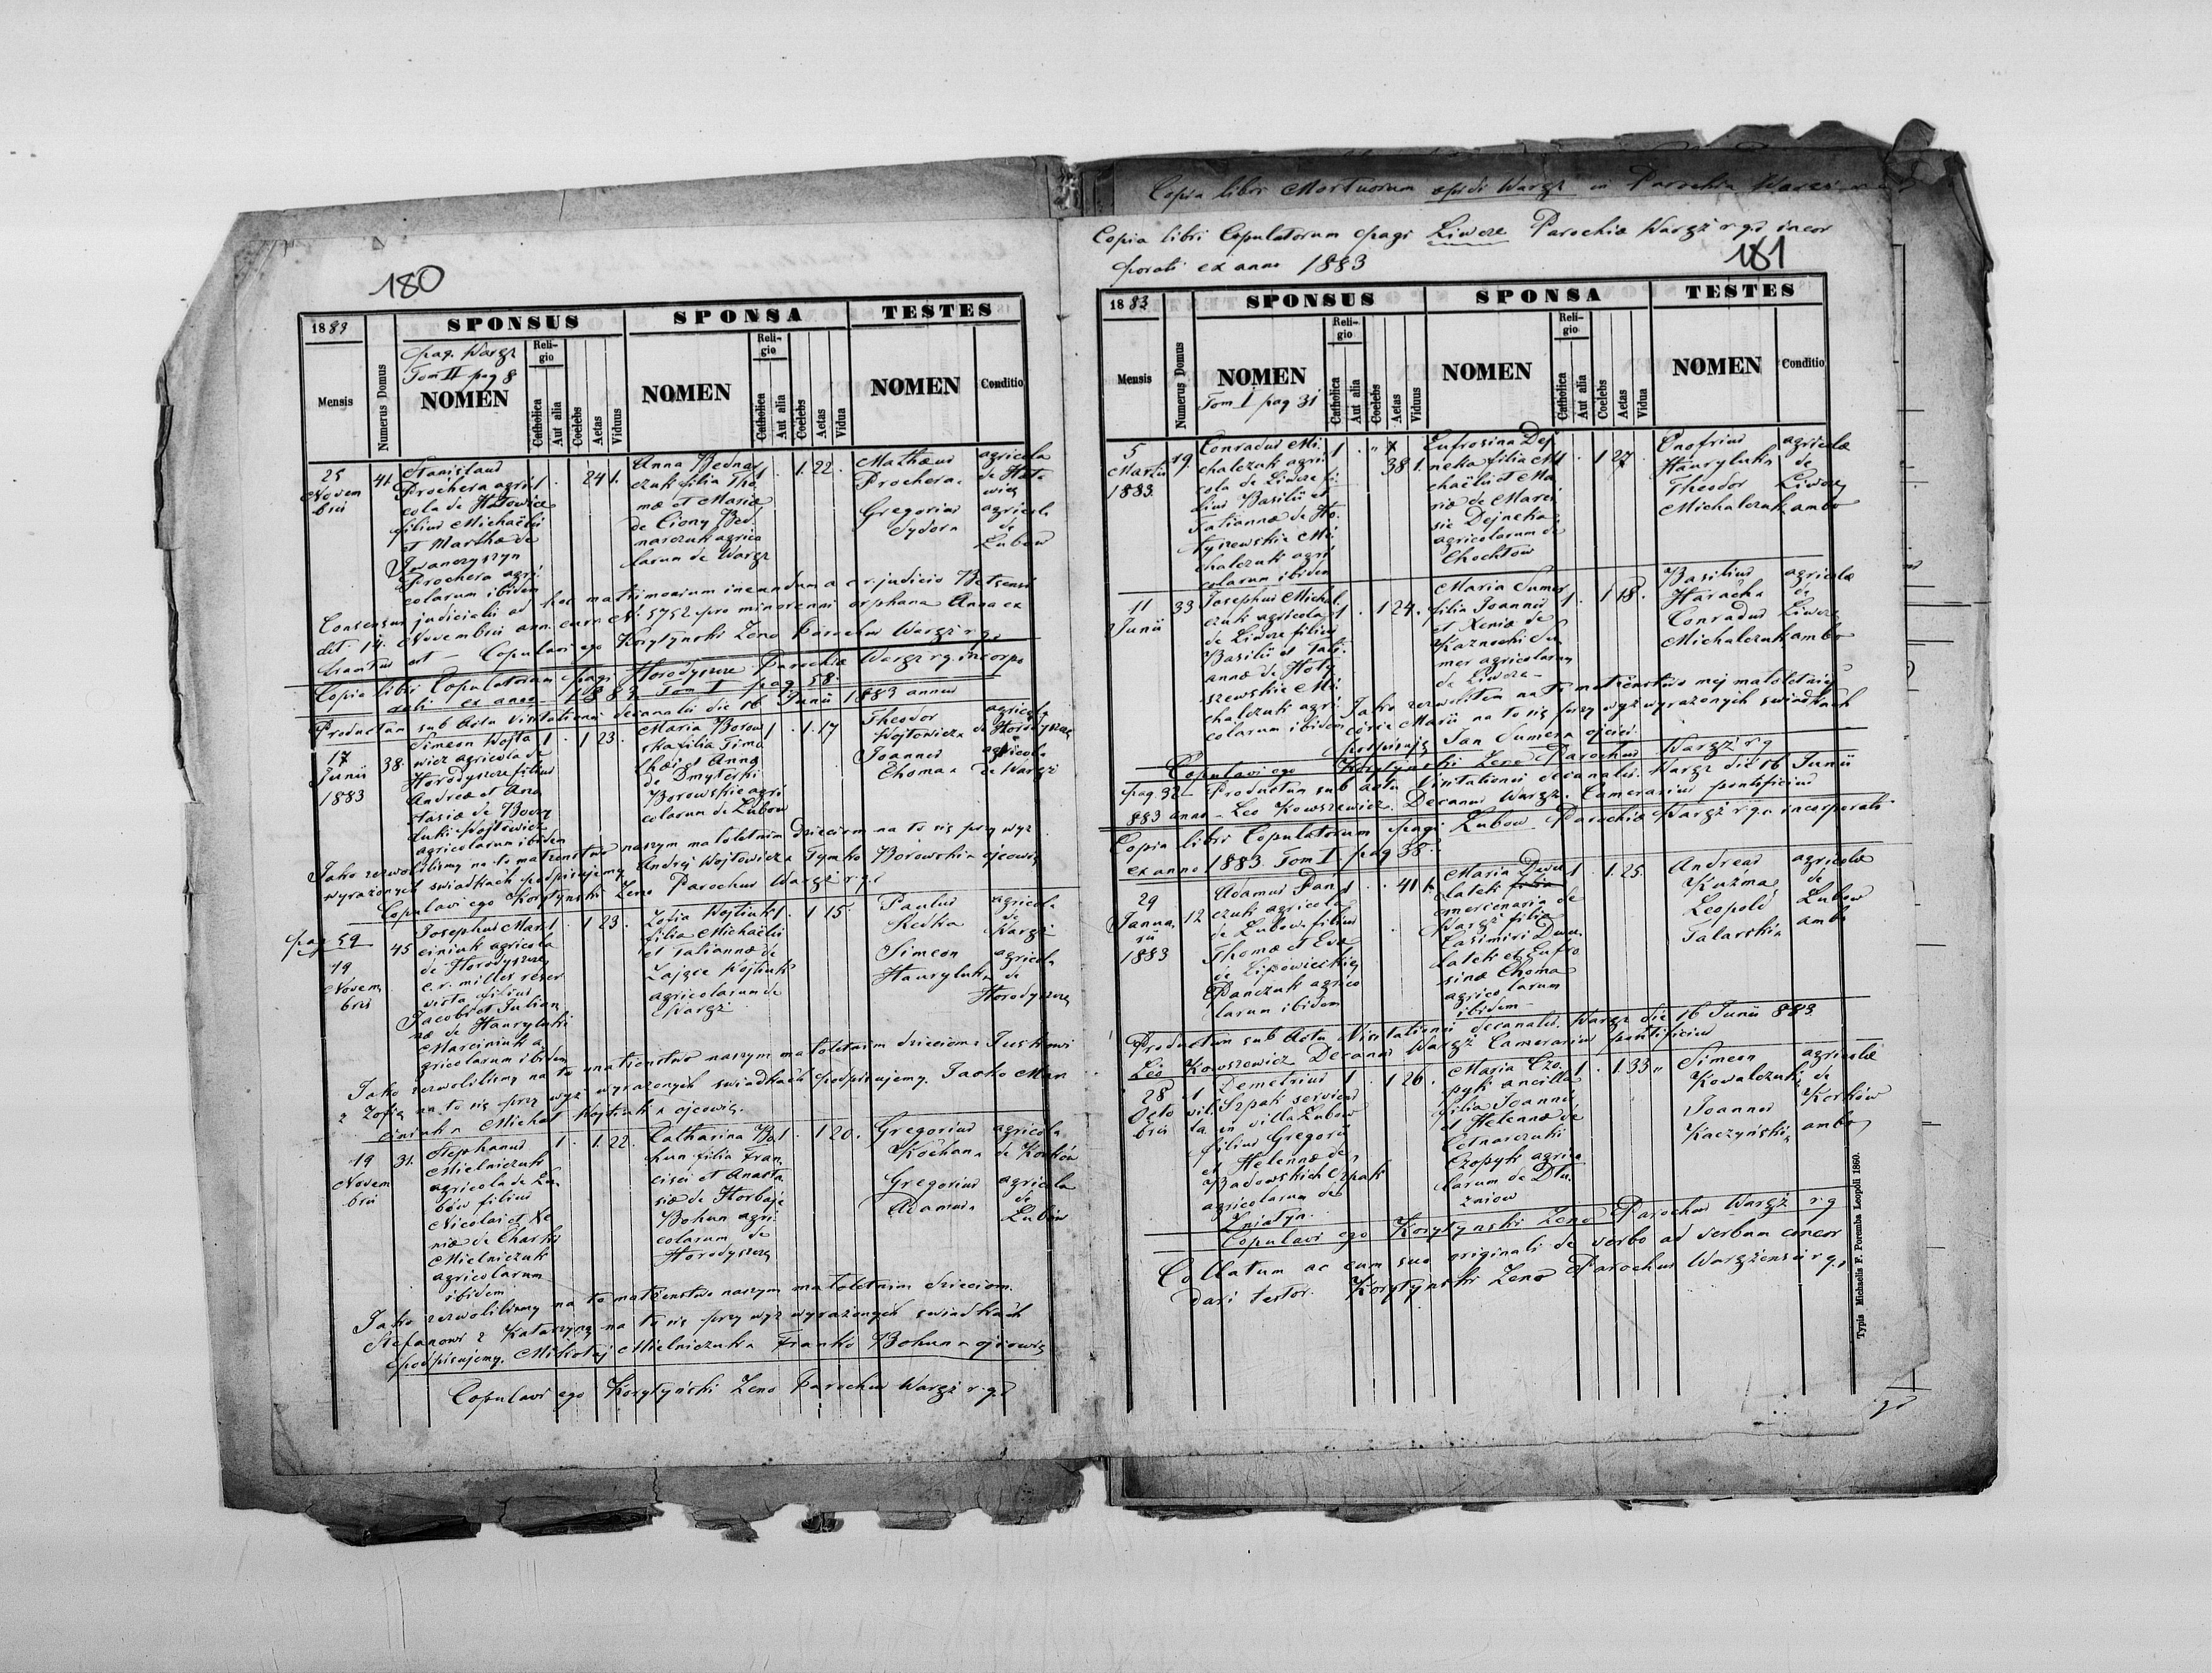 180
1883
SPONSUS
SPONSA
TESTES
Mensis
Numerus Domus
pag. Wargż
Tom II pag 8
NOMEN
Religio
Catholica
Aut alia
Coelebs
Aetas
Viduus
NOMEN
Religio
Catholica
Aut alia
Coelebs
Aetas
Vidua
NOMEN
Conditio
25
Novem
bris
41
Stanislaus
Prochera agri
cola de
filius Michaëlis
et Marthæ de
Iwanczyszyn
Prochera agri
colarum ibidem
1 . 24 1.
Anna Bednar
czuk filia Tho
mæ et Mariæ
de Ciony Bed
narczuk agrico
larum de Wargż
1 . 1. 22.
Mathæus
Prochera
Gregorius
Sydor
agricola
agricola
de
Lubow
Consensus judicialis ad hoc matrimonium ineundum a c. r. judicio Betzensi
ddt. 14. Novembris ann. curr. N. 5752 pro minorenni orphana Anna ex
est - Copulavi ego Korytynski Zeno Parochus Wargż r. g.
Copia libri Copulatorum pagi Horodyszcze Parochiæ Wargż r. g. incorpo
rati ex anno 1883 Tom I pag 58.
Productum sub Actu Visitationis decanalis die 16 Junii 1883 annus
17
Junii
1883
38.
Simeon Wojto
wicz agricola de
Horodyszcze filius
Andreæ et Ana
stasiæ de
Wojtowicz
agricolarum ibidem
1 . 1 23.
Maria Borow
ska filia Timo
thæi et Anna
de Dmyterki
Borowskie agri
colarum de Lubow
1 . 1. 17
Theodor
Wojtowicz
Joannes
Choma
agricola
de Horodyszcze
agricola
de Wargż
Jako zezwoliliśmy na to małżeństwo naszym małoletnim dzieciom na to się przy wyż
wyrażonych świadkach podpisujemy Andrej Wojtowicz Tymko Borowski ojcowie
Copulavi ego Korytynski Zeno Parochus Wargż r. g.
pag 59
19
Novem
bris
45
Josephus Mar
ciniuk agricola
de Horodyszcze
c. r. miles reser
vista filius
Jacobi et Julian
næ de Hauryluki
Marciniuk a
gricolarum ibidem
1 . 1 23.
Zofia Wojtiuk
filia Michaëlis
et Tatiannæ de
Zajzce Wojtiuk
agricolarum de
Wargż
1 . 1 15.
Paulus
Redka
Simeon
Hauryluk
agricola
de
Wargż
agricola
de
Horodyszcze
Jako zezwoliliśmy na to małżeństwo naszym małoletnim dzieciom Juskowi
z Zofią na to się przy wyż wyrażonych świadkach podpisujemy. Jaćko Mar
ciniuk Michał Wojtiuk ojcowie.
19
Novem
bris
31.
Stephanus
Mielniczuk
agricola de Lu
bów filius
Nicolai et Xe
niæ de Charki
Mielniczuk
agricolarum
ibidem
1 . 1. 22.
Catharina Bo
hun filia Fran
cisci et Anasta
siæ de Horbaje
Bohun agri
colarum de
Horodyszcze
1 . 1 20.
Gregorius
Kochan
Gregorius
Adamus
agricola
de Korków
agricola
de
Lubów
Jako zezwoliliśmy na to małżeństwo naszym małoletnim dzieciom.
Stefanowi z Katarzyną na to się przy wyż wyrażonych świadkach
podpisujemy. Mikołaj Mielniczuk Franko Bohun ojcowie
Copulavi ego Korytyński Zeno Parochus Wargż r. g.
Copia libri Mortuorum opidi Wargż in Parochia Wargż
Copia libri Copulatorum pagi Liwcze Parochiæ Wargż r. g. incor
porati ex anno 1883
181
1883
SPONSUS
SPONSA
TESTES
Mensis
Numerus Domus
NOMEN
Tom I pag 31
Religio
Catholica
Aut alia
Coelebs
Aetas
Viduus
NOMEN
Religio
Catholica
Aut alia
Coelebs
Aetas
Vidua
NOMEN
Conditio
5
Martii
1883.
19.
Conradus Mi
chalczuk agri
cola de Liwcze fi
lius Basilii et
Tatiannæ de Ho
łyszewskie Mi
chalczuk agri
colarum ibidem
1 . 38 1.
Eufrosina Dej
neka filia Mi
chaëlis et Ma
riæ de Marci
sie Dejneka
agricolarum de
Chochłow
1 . 1 27.
Onofrius
Hauryluk
Theodor
Michalczuk
agricolæ
de
Liwcze
ambo
11
Junii
33
Josephus Michal
czuk agricola
de Liwcze filius
Basilii et Tati
annæ de Hoły
szewskie Mi
chalczuk agri
colarum ibidem
1 . 1 24.
Maria Sumer
filia Joannis
et Xeniæ de
Kaznoschi Su
mer agricolarum
de Liwcze -
1 . 1 18.
Basilius
Haracha
Conradus
Michalczuk
agricolæ
de
Liwcze
ambo
Jako zezwoliłem na to małżeństwo mej małoletniej
córce Marii na to się przy wyż wyrażonych świadkach
podpisuję Jan Sumera ojciec.
Copulavi ego Korytynski Zeno Parochus Wargż r. g.
pag. 32 Productum sub actu Visitationis decanalis. Wargż die 16 Junii
883 anno - Leo Kowszewicz Decanus Wargż. Camerarius pontificius
Copia libri Copulatorum pagi Lubow Parochiæ Wargż r. g. incorporati
ex anno 1883 Tom I pag 38.
29
Janua
rii
1883
12
Adamus Pan
czuk agricola
de Lubow filius
Thomæ et Eva
de Lipowieckie
Panczuk agrico
larum ibidem
1 . 41 1.
Maria Dwu
latek filia
mercenaria de
Wargż filia
Casimiri Dwu
latek et Eufro
sinæ Choma
agricolarum
ibidem -
1 . 1. 25.
Andreas
Kuźma
Leopold
Talarski
agricolæ
de
Lubow
ambo
Productum sub Actu Visitationis decanalis. Wargż die 16 Junii 883
Leo Kowszewicz Decanus Wargż Camerarius pontificius
28
Octo
bris
1
vil
la
Demetrius
Szpak serviens
in villa Lubow
filius Gregorii
et Helennæ de
Badowskich Szpak
agricolarum de
Żniatyn.
1 . 1 26.
Maria Czo
pyk ancilla
filia Joannis
et Helennæ de
Cetnarczuki
Czopyk agrico
larum de Dłu
żniow
1 . 1 33
Simeon
Kowalczuk
Joannes
Kaczyński
agricolæ
de
Korków
ambo
Copulavi ego Korytynski Zeno Parochus Wargż r. g.
Collatum ac cum suo originali de verbo ad verbum concor
dari testor. Korytynski Zeno Parochus Wargżensis r. g.
Typis Michaelis F. Poremba Leopoli 1860.